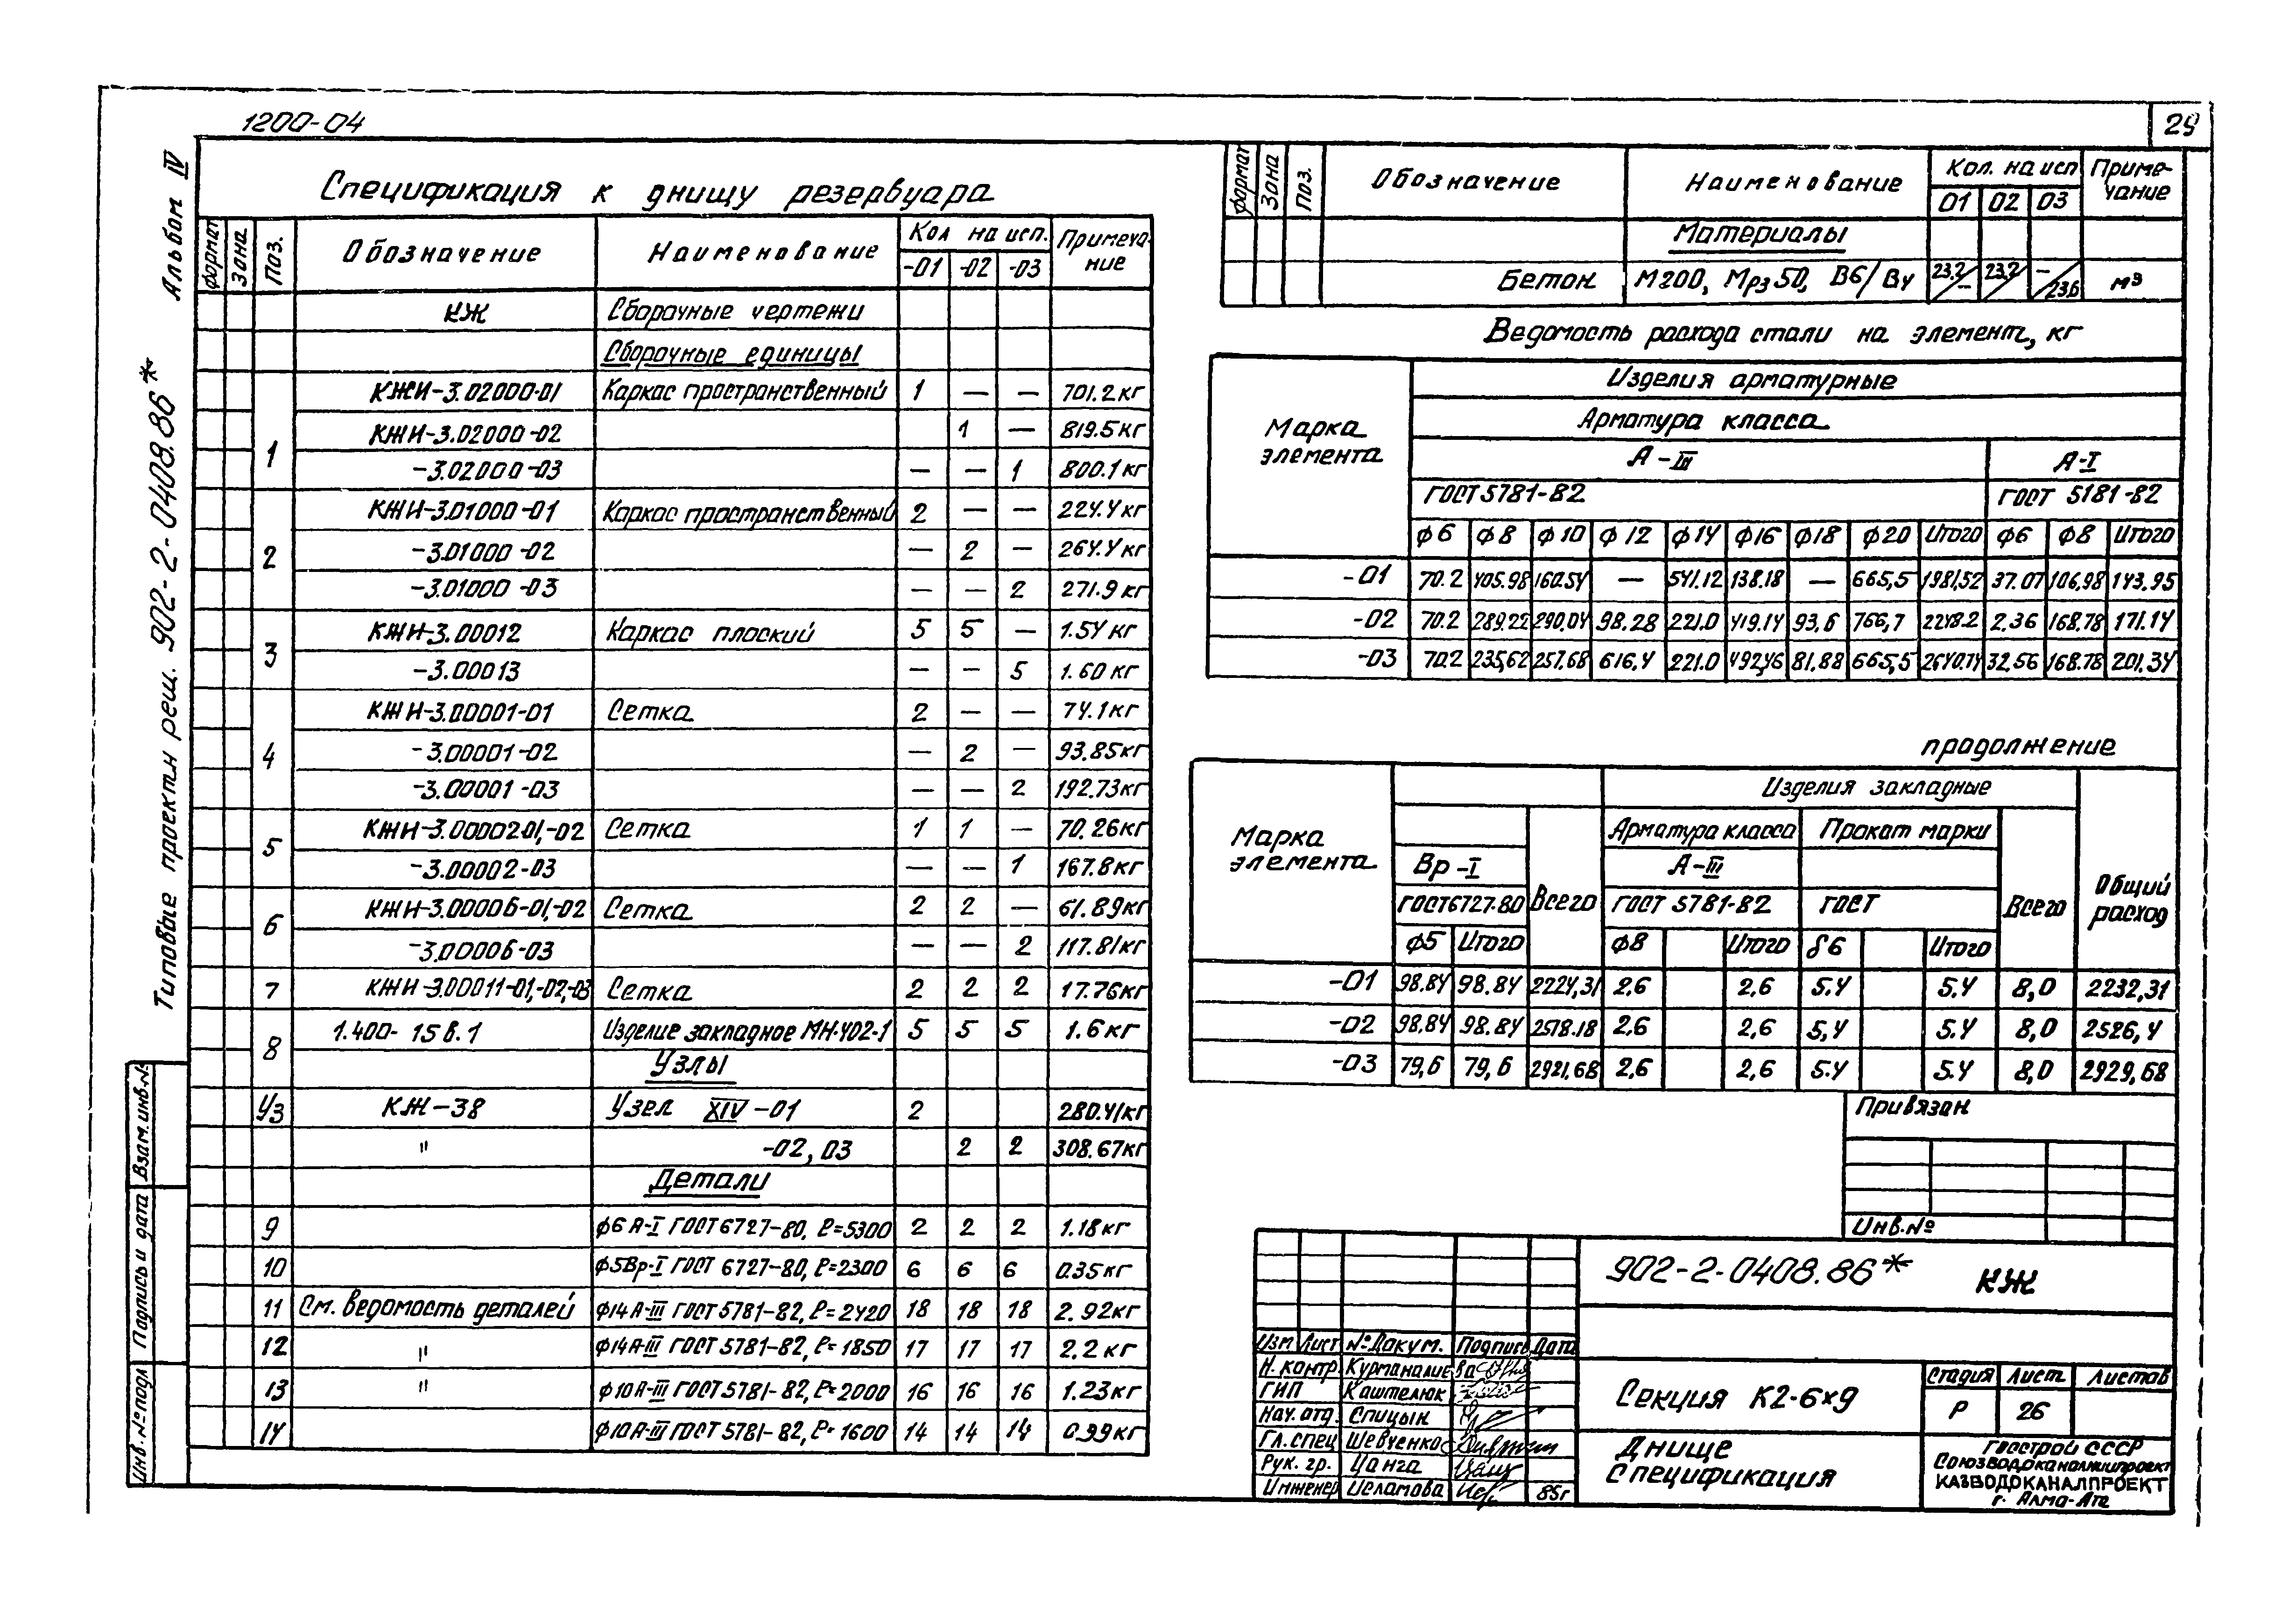 1200-04
29
Альбом IV
Типовые проектн реш. 902-2-0408.86*
Взам.инв.№
Подпись и дата
Инв.№подл
Спецификация к днищу резервуара
формат Зона Поз. Обозначение Наименование Кол на исп. Примечание
-01 -02 -03
КЖ Сборочные чертежи
Сборочные единицы
1 КЖИ-3.02000-01 Каркас пространственный 1 — — 701.2кг
КЖИ-3.02000-02 1 — 819.5кг
-3.02000-03 — — 1 800.1кг
2 КЖИ-3.01000-01 Каркас пространственный 2 — — 224.4кг
-3.01000-02 — 2 — 264.4кг
-3.01000-03 — — 2 271.9кг
3 КЖИ-3.00012 Каркас плоский 5 5 — 1.54кг
-3.00013 — — 5 1.60кг
4 КЖИ-3.00001-01 Сетка 2 — — 74.1кг
-3.00001-02 — 2 — 93.85кг
-3.00001-03 — — 2 192.73кг
5 КЖИ-3.00002-01,-02 Сетка 1 1 — 70.26кг
-3.00002-03 — — 1 167.8кг
6 КЖИ-3.00006-01,-02 Сетка 2 2 — 61.89кг
-3.00006-03 — — 2 117.81кг
7 КЖИ-3.00011-01,-02,-03 Сетка 2 2 2 17.76кг
8 1.400-15 в.1 Изделие закладное МН-402-1 5 5 5 1.6кг
Узлы
У3 КЖ-38 Узел XIV-01 2 280.41кг
" -02, 03 2 2 308.67кг
Детали
9 ф6 А-I ГОСТ 6727-80, ℓ=5300 2 2 2 1.18кг
10 ф5Вр-I ГОСТ 6727-80, ℓ=2300 6 6 6 0.35кг
11 См. ведомость деталей ф14 А-III ГОСТ 5781-82, ℓ=2420 18 18 18 2.92кг
12 " ф14А-III ГОСТ 5781-82, ℓ=1850 17 17 17 2.2кг
13 " ф10А-III ГОСТ 5781-82, ℓ=2000 16 16 16 1.23кг
14 ф10А-III ГОСТ 5781-82, ℓ=1600 14 14 14 0.99кг
формат Зона Поз. Обозначение Наименование Кол. на исп Примечание
01 02 03
Материалы
Бетон М200, Мрз50, В6/В4 23.2/— 23.2/ —/23.6 м3
Ведомость расхода стали на элемент, кг
Марка элемента Изделия арматурные
Арматура класса
А-III А-I
ГОСТ 5781-82 ГОСТ 5181-82
ф6 ф8 ф10 ф12 ф14 ф16 ф18 ф20 Итого ф6 ф8 Итого
-01 70.2 405.98 160.54 — 541.12 138.18 — 665,5 1981,52 37.07 106,98 143.95
-02 70.2 289.22 290,04 98.28 221.0 419.14 93,6 766,7 2248.2 2.36 168.78 171.14
-03 70.2 235,62 257.68 616,4 221.0 492,46 81.88 665,5 2640.74 32.56 168.78 201.34
продолжение
Марка элемента Всего Изделия закладные Общий расход
Арматура класса Прокат марки Всего
Вр-I А-III
ГОСТ6727-80 ГОСТ 5781-82 ГОСТ
ф5 Итого ф8 Итого δ6 Итого
-01 98.84 98.84 2224,31 2,6 2,6 5.4 5.4 8,0 2232,31
-02 98.84 98.84 2518.18 2,6 2,6 5,4 5.4 8,0 2526,4
-03 79,6 79,6 2921,68 2,6 2,6 5.4 5.4 8,0 2929,68
Привязан
Инв.№
902-2-0408.86* КЖ
Изм Лист №Докум. Подпись Дата
Н.контр Курманалиева
ГИП Каштелюк
Нач.отд. Спицын
Гл.спец Шевченко
Рук. гр. Цанга
Инженер Исламова 85г
Секция К2-6х9
Стадия Лист Листов
Р 26
Днище
Спецификация
Госстрой СССР
Союзводоканалниипроект
КАЗВОДОКАНАЛПРОЕКТ
г. Алма-Ата